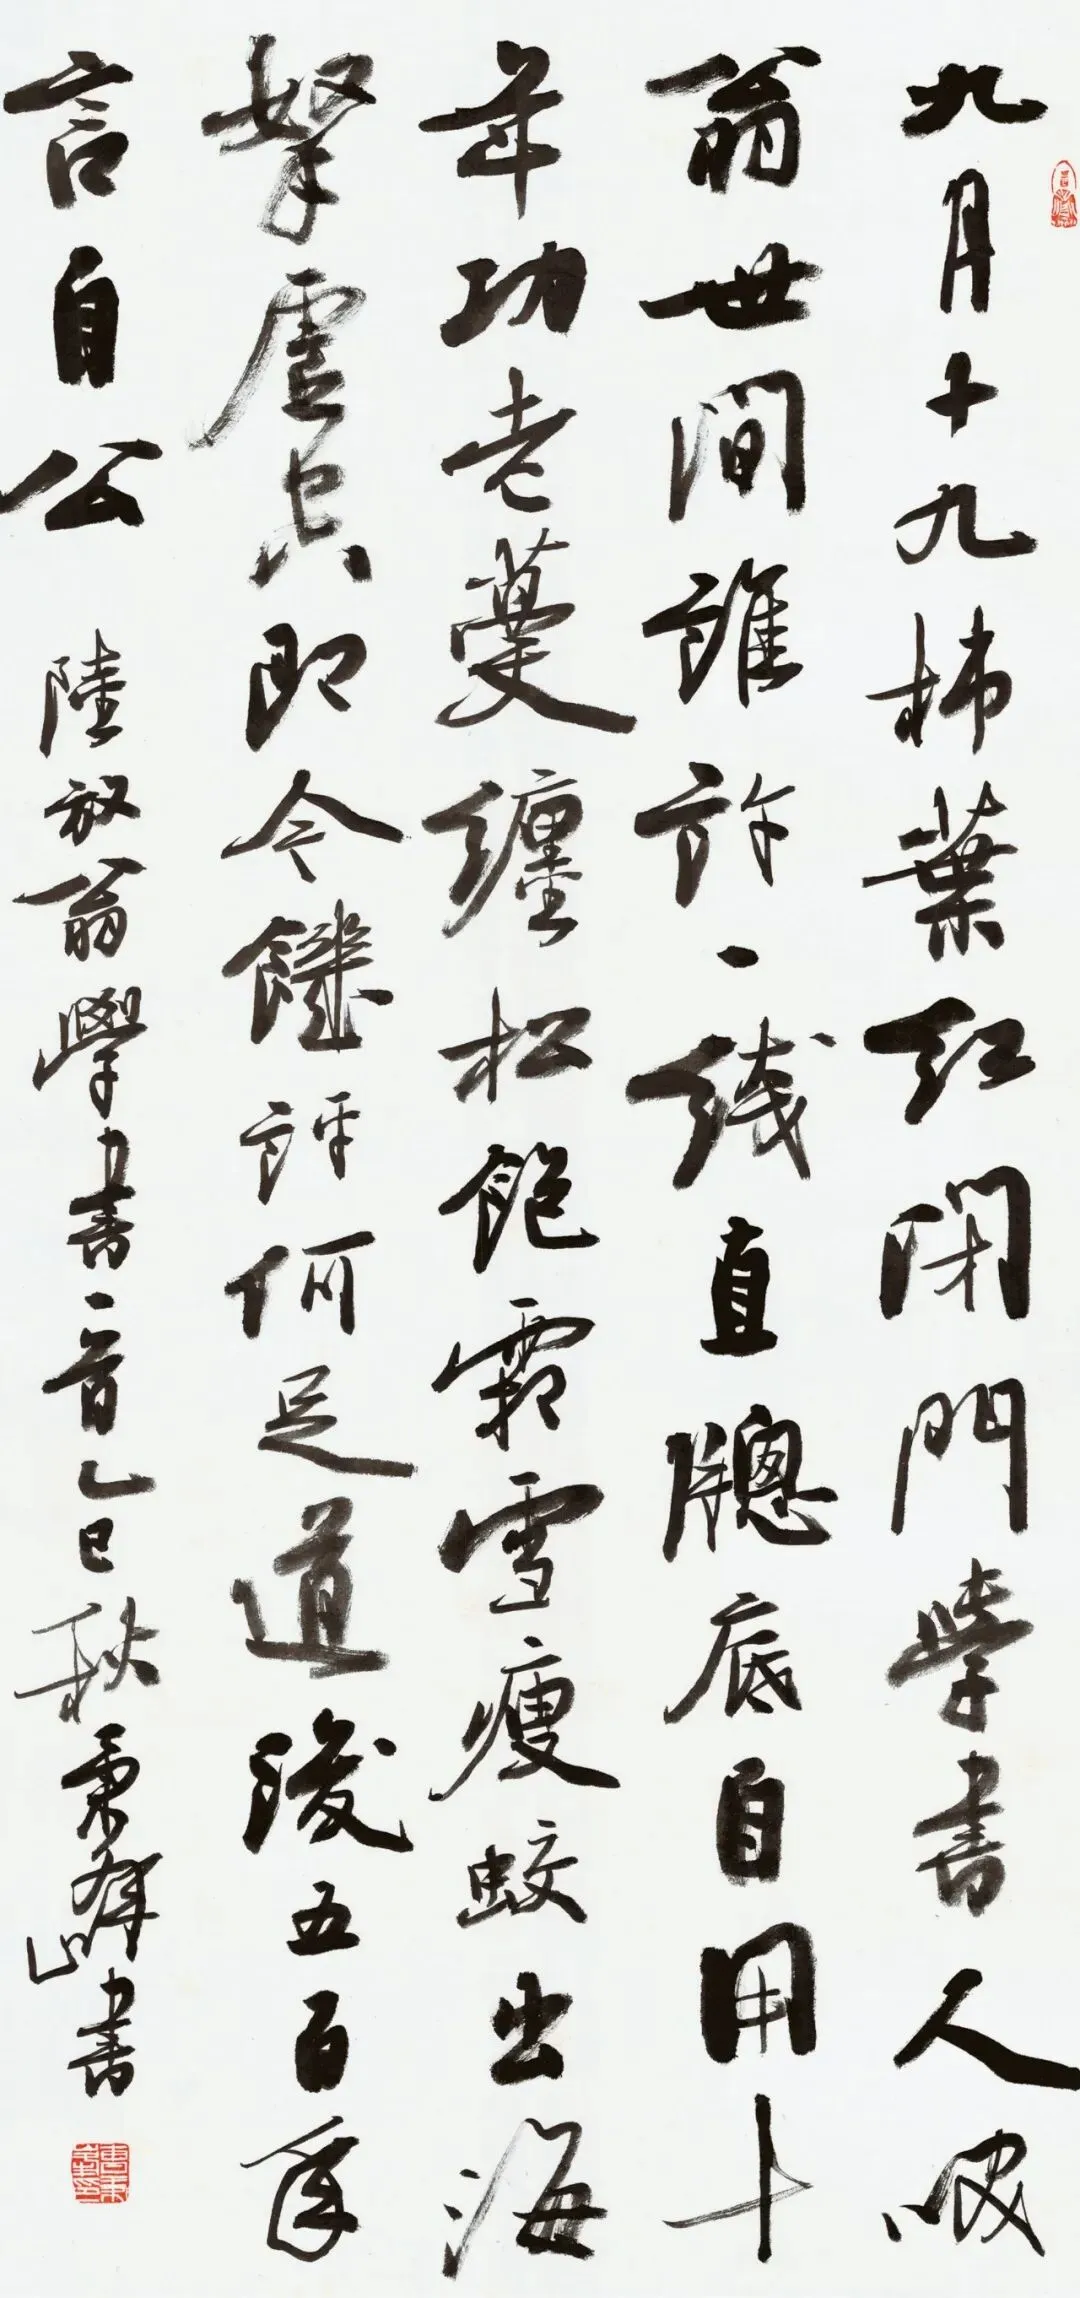 九月十九柿葉紅閉門學書人咲
翁世間誰許一綫直牕底自用十
年功老蔓纏松飽霜雪瘦蛟出海
拏虛空即今饑評何足道後五百年
言自公 陸放翁學書一首乙巳秋秉峰書